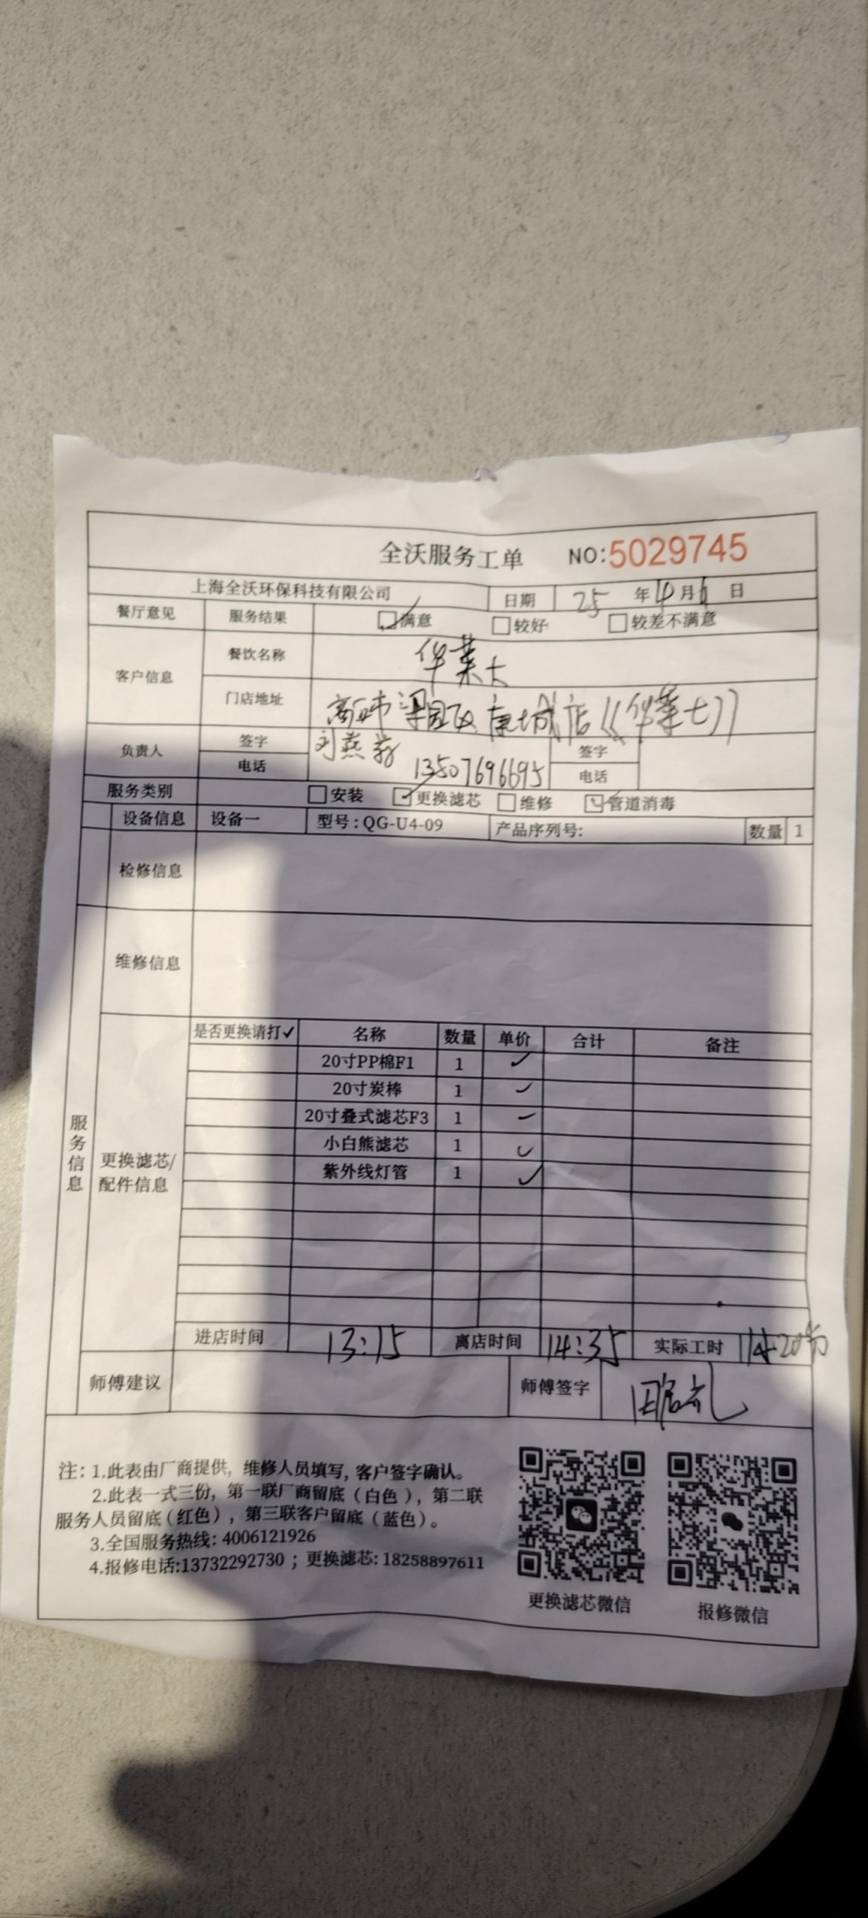 全沃服务工单 NO:5029745
上海全沃环保科技有限公司 日期 25 年 月 日
餐厅意见 服务结果 满意 较好 较差不满意
客户信息 餐饮名称 华莱士
门店地址 商丘市梁园区康城店《华莱士》
负责人 签字 刘燕 签字
电话 13507696695 电话
服务类别 安装 更换滤芯 维修 管道消毒
设备信息 设备一 型号:QG-U4-09 产品序列号: 数量 1
检修信息
维修信息
服务信息
更换滤芯/配件信息
是否更换请打✓ 名称 数量 单价 合计 备注
20寸PP棉F1 1 ✓
20寸炭棒 1 ✓
20寸叠式滤芯F3 1
小白熊滤芯 1 ✓
紫外线灯管 1 ✓
进店时间 13:15 离店时间 14:35 实际工时
师傅建议 师傅签字
注:1.此表由厂商提供,维修人员填写,客户签字确认。
2.此表一式三份,第一联厂商留底(白色),第二联
服务人员留底(红色),第三联客户留底(蓝色)。
3.全国服务热线:4006121926
4.报修电话:13732292730;更换滤芯:18258897611
更换滤芯微信 报修微信